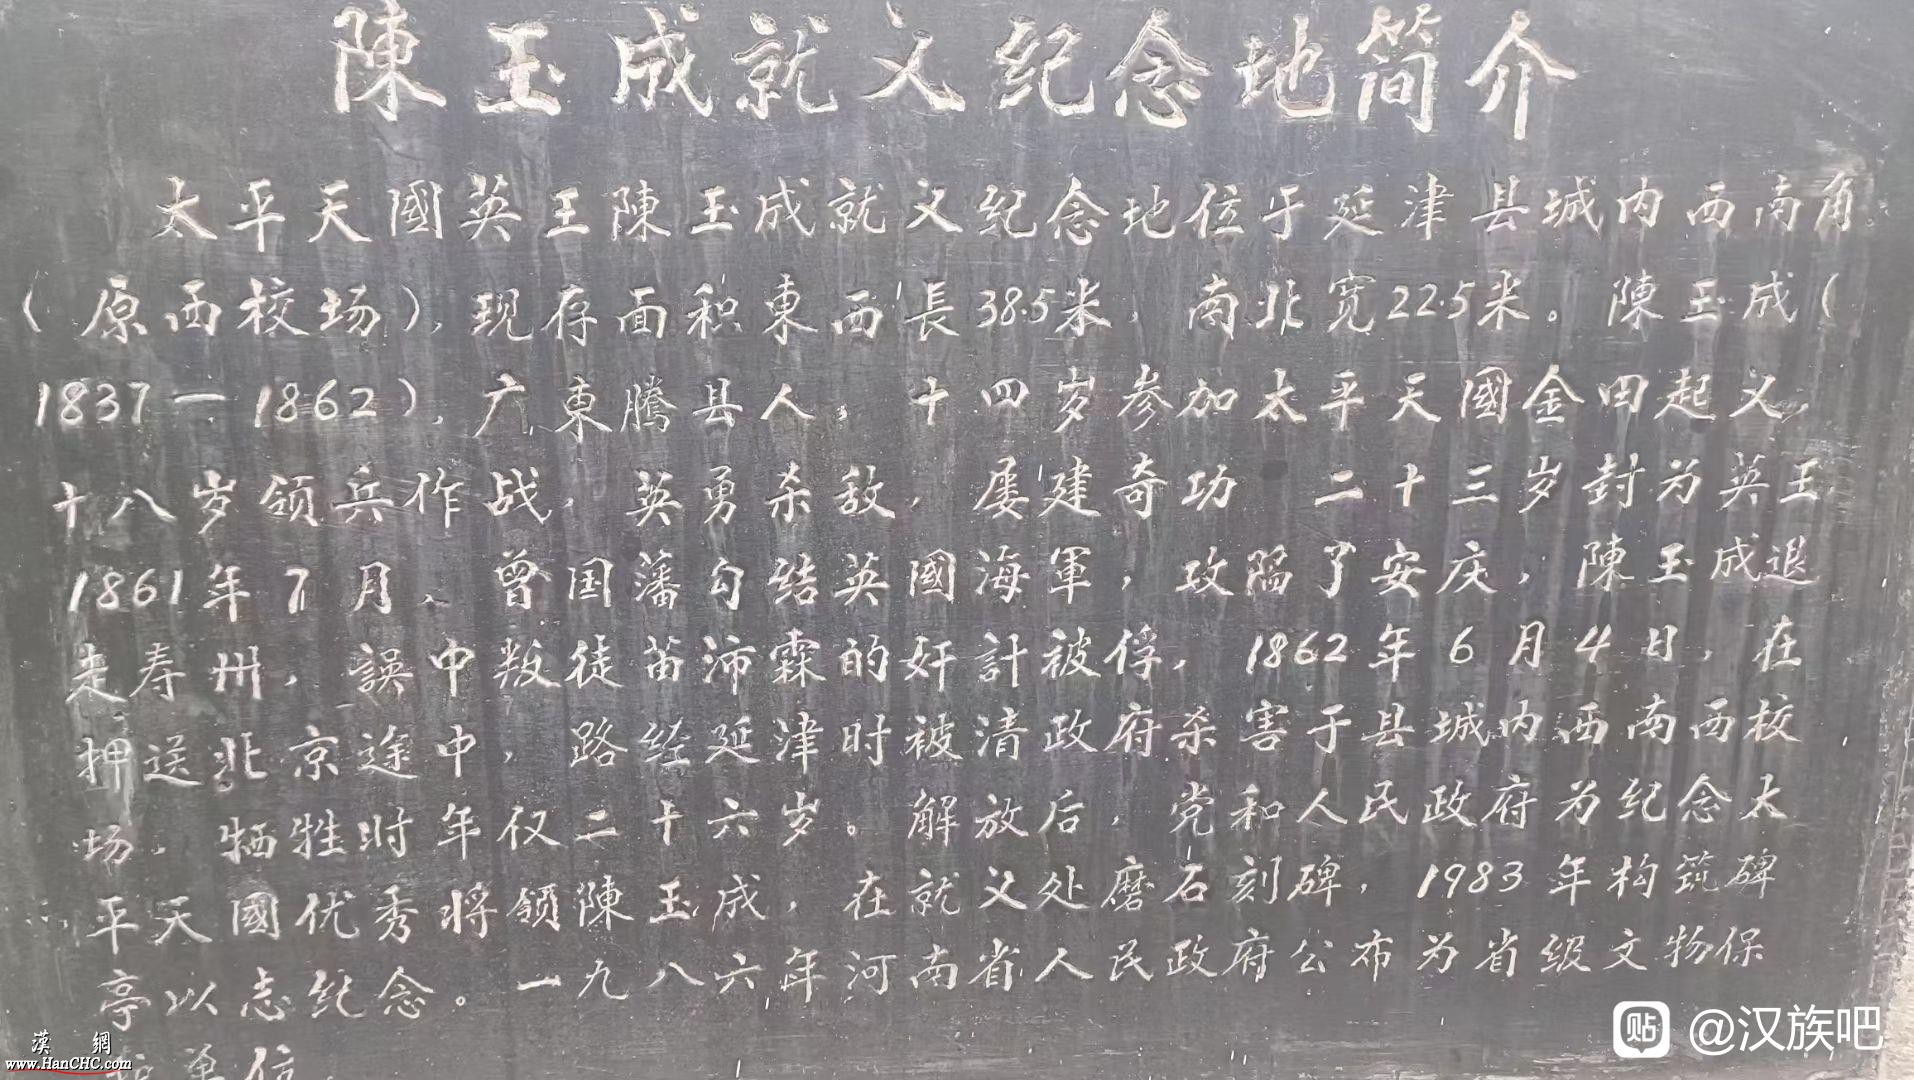 陳玉成就义纪念地简介
太平天國英王陳玉成就义纪念地位于延津县城内西南角
（原西校场），现存面积東西長38.5米，南北宽22.5米。陳玉成（
1837—1862），广東腾县人。十四岁参加太平天國金田起义，
十八岁领兵作战，英勇杀敌，屡建奇功 二十三岁封为英王
1861年7月、曾国藩勾结英國海軍，攻陷了安庆，陳玉成退
走寿州，誤中叛徒苗沛霖的奸計被俘，1862年6月4日，在
押送北京途中，路经延津时被清政府杀害于县城内西南西校
场．牺牲时年仅二十六岁。解放后，党和人民政府为纪念太
平天國优秀将領陳玉成，在就义处磨石刻碑，1983年构筑碑
亭以志纪念。一九八六年河南省人民政府公布为省级文物保
护单位．
漢網
www.HanCHC.com
贴 @汉族吧